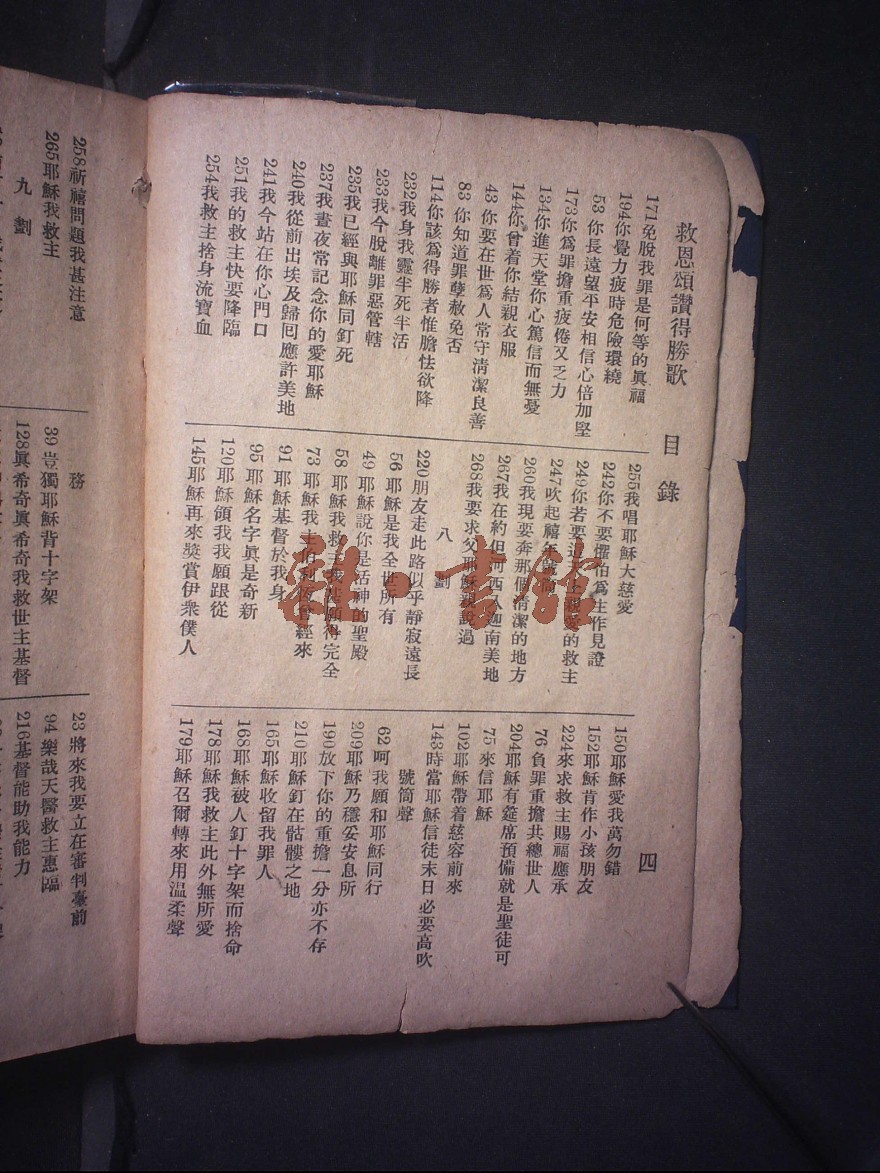 救恩頌讚得勝歌 目錄 四
171免脫我罪是何等的眞福
194你覺力疲時危險環繞
53 你長遠望平安相信心倍加堅
173你爲罪擔重疲倦又乏力
134你進天堂你心篤信而無憂
144你曾着你結親衣服
43 你要在世爲人常守清潔良善
83 你知道罪孽赦免否
114你該爲得勝者惟膽怯欲降
232我身我靈半死半活
233我今脫離罪惡管轄
235我已經與耶穌同釘死
237我晝夜常記念你的愛耶穌
240我從前出埃及歸囘應許美地
241我今站在你心門口
251我的救主快要降臨
254我救主捨身流寶血
255我唱耶穌大慈愛
242你不要懼怕爲主作見證
249你若要近主親愛的救主
247吹起禧年號筒
260我現要奔那個清潔的地方
267我在約但河西入迦南美地
268我要求父耶穌親說過
八劃
220朋友走此路似乎靜寂遠長
56 耶穌是我全世所有
49 耶穌說你是活神的聖殿
58 耶穌我救主我甚願得完全
73 耶穌我主 經來
91 耶穌基督於我身
95 耶穌名字眞是奇新
120耶穌領我我願跟從
145耶穌再來獎賞伊衆僕人
150耶穌愛我萬勿錯
152耶穌肯作小孩朋友
224來求救主賜福應承
76 負罪重擔共總世人
204耶穌有筵席預備就是聖徒可
75 來信耶穌
102耶穌帶着慈容前來
143時當耶穌信徒末日必要高吹
號筒聲
62 呵我願和耶穌同行
209耶穌乃穩妥安息所
190放下你的重擔一分亦不存
210耶穌釘在骷髏之地
165耶穌收留我罪人
168耶穌被人釘十字架而捨命
178耶穌我救主此外無所愛
179耶穌召爾轉來用温柔聲
258祈禱問題我甚注意
265耶穌我救主
九劃
務
39 豈獨耶穌背十字架
128眞希奇眞希奇我救世主基督
23 將來我要立在審判臺前
94 樂哉天醫救主惠臨
216基督能助我能力
龍·書館